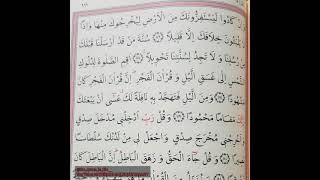 وَاِنْ كَادُوا لَيَسْتَفِزُّونَكَ مِنَ الْاَرْضِ لِيُخْرِجُوكَ مِنْهَا وَاِذًا
لَا يَلْبَثُونَ خِلَافَكَ اِلَّا قَلِيلًا ﴿٧٦﴾ سُنَّةَ مَنْ قَدْ اَرْسَلْنَا قَبْلَكَ
مِنْ رُسُلِنَا وَلَا تَجِدُ لِسُنَّتِنَا تَحْوِيلًا ﴿٧٧﴾ اَقِمِ الصَّلٰوةَ لِدُلُوكِ
الشَّمْسِ اِلٰى غَسَقِ الَّيْلِ وَ قُرْاٰنَ الْفَجْرِ اِنَّ قُرْاٰنَ الْفَجْرِ كَانَ
مَشْهُودًا ﴿٧٨﴾ وَمِنَ الَّيْلِ فَتَهَجَّدْ بِهٖ نَافِلَةً لَكَ عَسٰٓى اَنْ يَبْعَثَكَ
رَبُّكَ مَقَامًا مَحْمُودًا ﴿٧٩﴾ وَقُلْ رَبِّ اَدْخِلْنِي مُدْخَلَ صِدْقٍ
وَاَخْرِجْنِي مُخْرَجَ صِدْقٍ وَاجْعَلْ لِي مِنْ لَدُنْكَ سُلْطَانًا
﴿٨٠﴾ وَقُلْ جَٓاءَ الْحَقُّ وَ زَهَقَ الْبَاطِلُ اِنَّ الْبَاطِلَ كَانَ